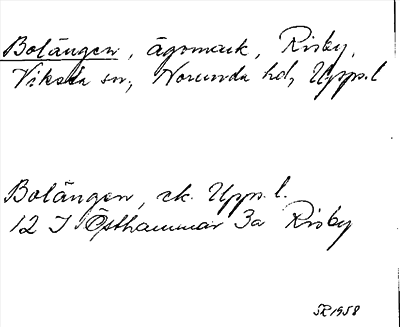 Bolängen, ägomark, Risby,
Viksta sn, Norunda hd, Upps.l
Bolängen, ek. Upps. l.
12 I Östhammar 3a Risby
SR 1958